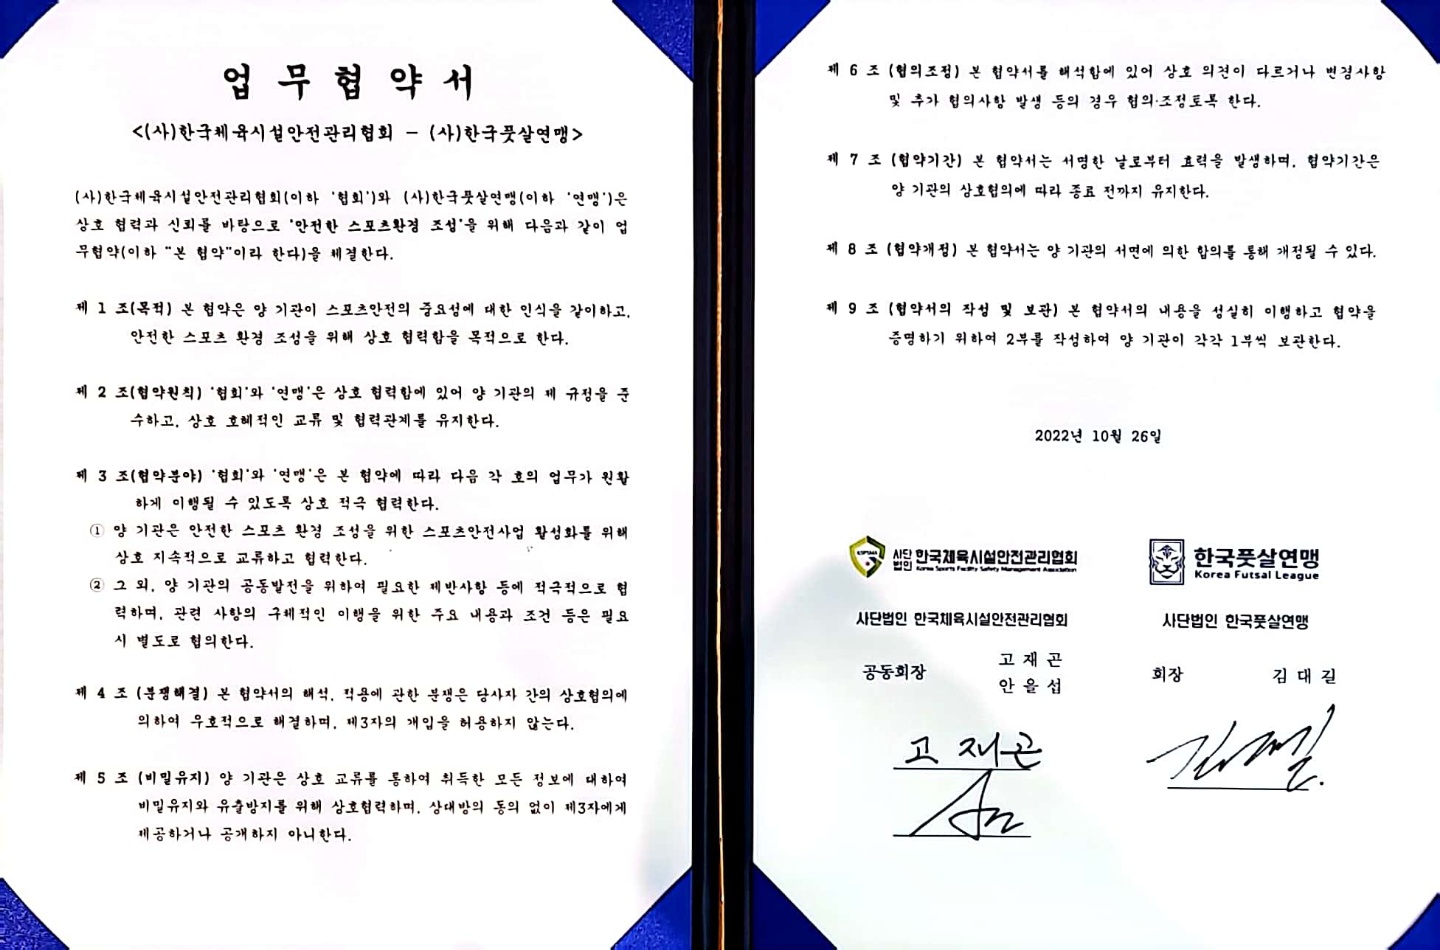 업 무 협 약 서
<(사)한국체육시설안전관리협회 - (사)한국풋살연맹>
(사)한국체육시설안전관리협회(이하 '협회')와 (사)한국풋살연맹(이하 '연맹')은
상호 협력과 신뢰를 바탕으로 '안전한 스포츠환경 조성'을 위해 다음과 같이 업
무협약(이하 "본 협약"이라 한다)을 체결한다.
제 1 조(목적) 본 협약은 양 기관이 스포츠안전의 중요성에 대한 인식을 같이하고,
안전한 스포츠 환경 조성을 위해 상호 협력함을 목적으로 한다.
제 2 조(협약원칙) '협회'와 '연맹'은 상호 협력함에 있어 양 기관의 제 규정을 준
수하고, 상호 호혜적인 교류 및 협력관계를 유지한다.
제 3 조(협약분야) '협회'와 '연맹'은 본 협약에 따라 다음 각 호의 업무가 원활
하게 이행될 수 있도록 상호 적극 협력한다.
① 양 기관은 안전한 스포츠 환경 조성을 위한 스포츠안전사업 활성화를 위해
상호 지속적으로 교류하고 협력한다.
② 그 외, 양 기관의 공동발전을 위하여 필요한 제반사항 등에 적극적으로 협
력하며, 관련 사항의 구체적인 이행을 위한 주요 내용과 조건 등은 필요
시 별도로 협의한다.
제 4 조 (분쟁해결) 본 협약서의 해석, 적용에 관한 분쟁은 당사자 간의 상호협의에
의하여 우호적으로 해결하며, 제3자의 개입을 허용하지 않는다.
제 5 조 (비밀유지) 양 기관은 상호 교류를 통하여 취득한 모든 정보에 대하여
비밀유지와 유출방지를 위해 상호협력하며, 상대방의 동의 없이 제3자에게
제공하거나 공개하지 아니한다.
제 6 조 (협의조정) 본 협약서를 해석함에 있어 상호 의견이 다르거나 변경사항
및 추가 협의사항 발생 등의 경우 협의·조정토록 한다.
제 7 조 (협약기간) 본 협약서는 서명한 날로부터 효력을 발생하며, 협약기간은
양 기관의 상호협의에 따라 종료 전까지 유지한다.
제 8 조 (협약개정) 본 협약서는 양 기관의 서면에 의한 합의를 통해 개정될 수 있다.
제 9 조 (협약서의 작성 및 보관) 본 협약서의 내용을 성실히 이행하고 협약을
증명하기 위하여 2부를 작성하여 양 기관이 각각 1부씩 보관한다.
2022년 10월 26일
사단법인 한국체육시설안전관리협회
Korea Sports Facility Safety Management Association
한국풋살연맹
Korea Futsal League
사단법인 한국체육시설안전관리협회
사단법인 한국풋살연맹
공동회장 고 재 곤
안 을 섭
회장 김 대 길
고 재곤
김대길